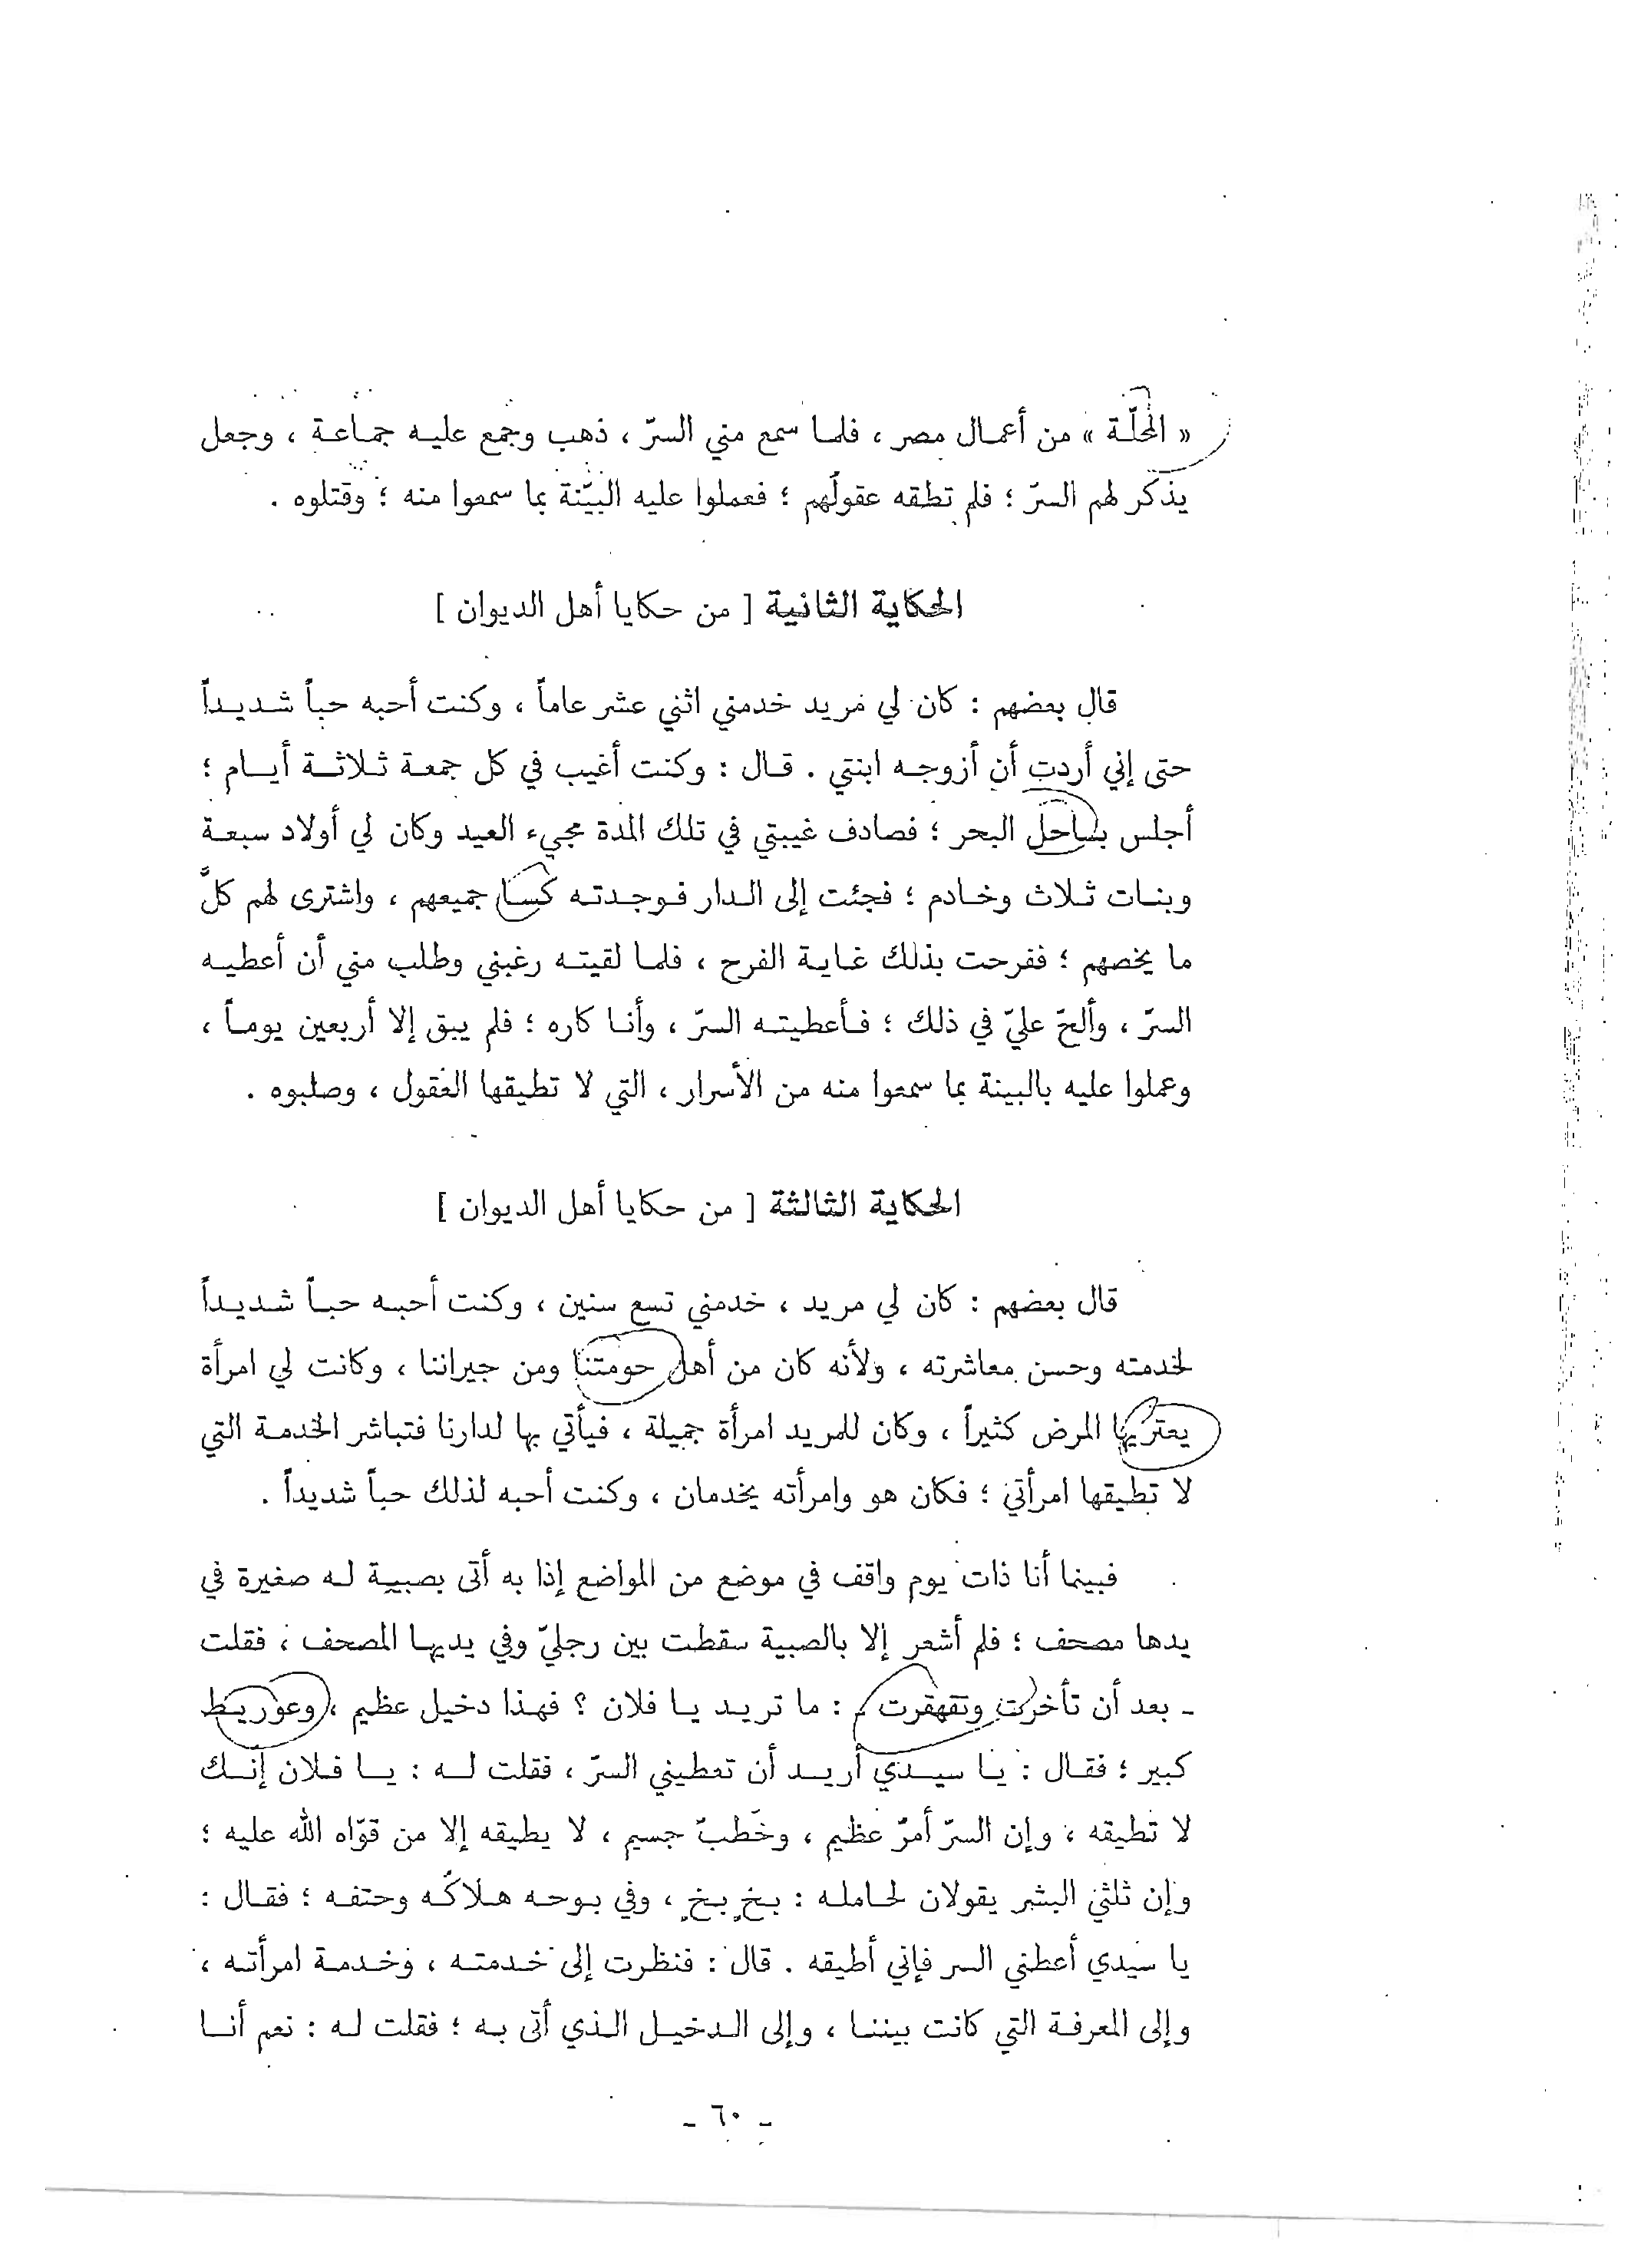 « المحلّة » من أعمال مصر ، فلما سمع مني السرّ ، ذهب وجمع عليه جماعة ، وجعل
يذكر لهم السرّ ؛ فلم تطقه عقولُهم ؛ فعملوا عليه البيّنة بما سمعوا منه ؛ وقتلوه .
الحكاية الثانية [ من حكايا أهل الديوان ]
قال بعضهم : كان لي مريد خدمني اثني عشر عاماً ، وكنت أحبه حباً شديداً
حتى إني أردت أن أزوجه ابنتي . قال : وكنت أغيب في كل جمعة ثلاثة أيام ؛
أجلس بساحل البحر ؛ فصادف غيبتي في تلك المدة مجيء العيد وكان لي أولاد سبعة
وبنات ثلاث وخادم ؛ فجئت إلى الدار فوجدته كسا جميعهم ، واشترى لهم كلَّ
ما يخصهم ؛ ففرحت بذلك غاية الفرح ، فلما لقيته رغبني وطلب مني أن أعطيه
السرّ ، وألحّ عليّ في ذلك ؛ فأعطيته السرّ ، وأنا كاره ؛ فلم يبق إلا أربعين يوماً ،
وعملوا عليه بالبينة بما سمعوا منه من الأسرار ، التي لا تطيقها العقول ، وصلبوه .
الحكاية الثالثة [ من حكايا أهل الديوان ]
قال بعضهم : كان لي مريد ، خدمني تسع سنين ، وكنت أحبه حباً شديداً
لخدمته وحسن معاشرته ، ولأنه كان من أهل حومتنا ومن جيراننا ، وكانت لي امرأة
يعتريها المرض كثيراً ، وكان للمريد امرأة جميلة ، فيأتي بها لدارنا فتباشر الخدمة التي
لا تطيقها امرأتي ؛ فكان هو وامرأته يخدمان ، وكنت أحبه لذلك حباً شديداً .
فبينما أنا ذات يوم واقف في موضع من المواضع إذا به أتى بصبية له صغيرة في
يدها مصحف ؛ فلم أشعر إلا بالصبية سقطت بين رجليّ وفي يديها المصحف ، فقلت
ـ بعد أن تأخرت وتقهقرت ـ : ما تريد يا فلان ؟ فهذا دخيل عظيم ، وعوريط
كبير ؛ فقال : يا سيدي أريد أن تعطيني السرّ ، فقلت له : يا فلان إنّك
لا تطيقه ، وإن السرّ أمرّ عظيم ، وخَطبّ جسيم ، لا يطيقه إلا من قوّاه الله عليه ؛
وإن ثلثي البشر يقولان لحامله : بخٍ بخٍ ، وفي بوحه هلاكُه وحتفه ؛ فقال :
يا سيدي أعطني السر فإني أطيقه . قال : فنظرت إلى خدمته ، وخدمة امرأته ،
وإلى المعرفة التي كانت بيننا ، وإلى الدخيل الذي أتى به ؛ فقلت له : نعم أنا
ـ ٦٠ ـ